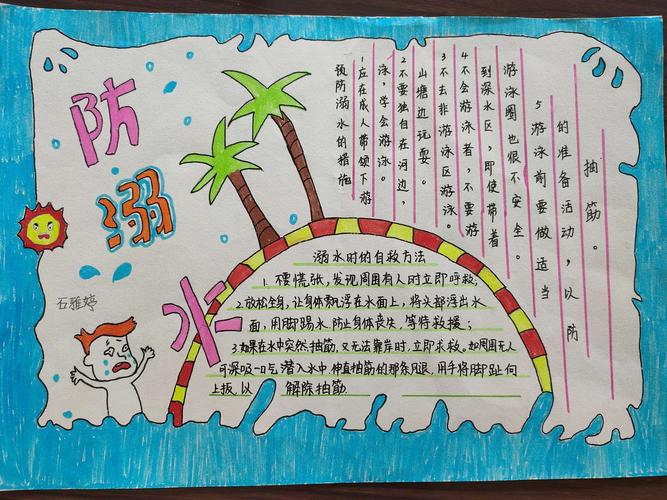 防
溺
水
石雅婷
预防溺水的措施
1应在成人带领下游
泳,学会游泳。
2不要独自在河边,
山塘边玩耍。
3不去非游泳区游泳。
4不会游泳者,不要游
到深水区,即使带着
游泳圈也很不安全。
5游泳前要做适当
的准备活动,以防
抽筋。
溺水时的自救方法
1.不要慌张,发现周围有人时立即呼救;
2.放松全身,让身体飘浮在水面上,将头部浮出水
面,用脚踢水,防止身体丧失,等待救援;
3.如果在水中突然抽筋,又无法靠岸时,立即求救。如周围无人
可深吸一口气潜入水中,伸直抽筋的那条腿,用手将脚趾向
上扳,以 解除抽筋.